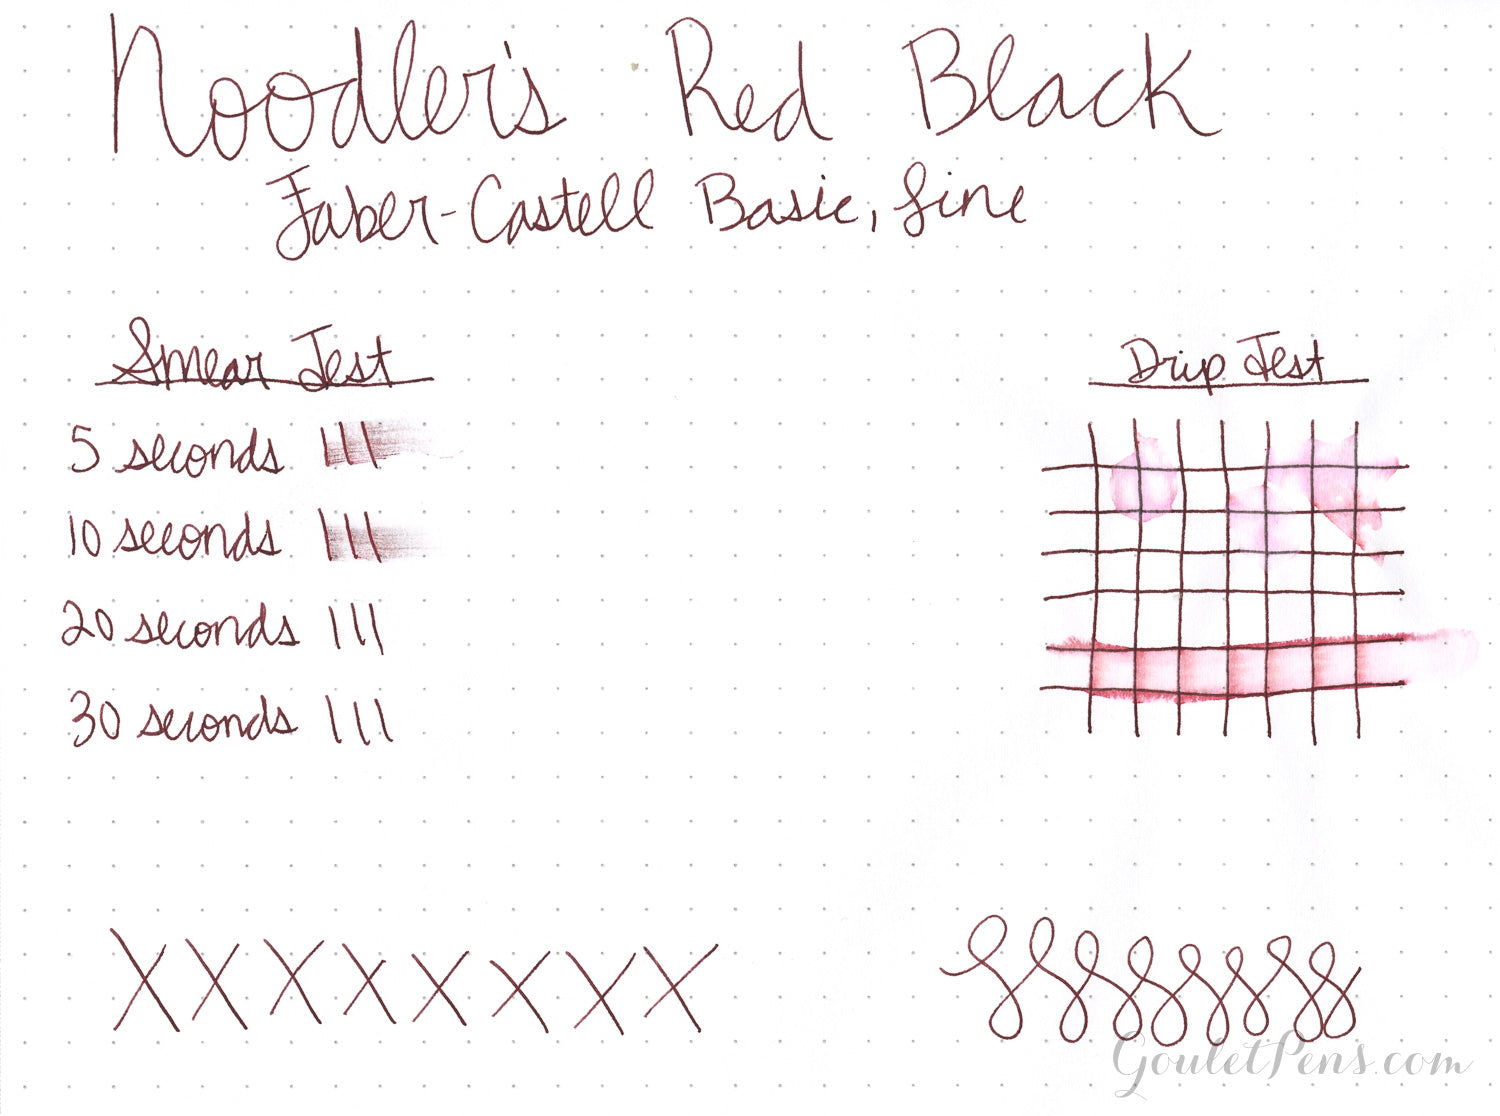 Noodler's Red Black
Faber-Castell Basic, fine
Smear Test
5 seconds
10 seconds
20 seconds
30 seconds
Drip Test
GouletPens.com